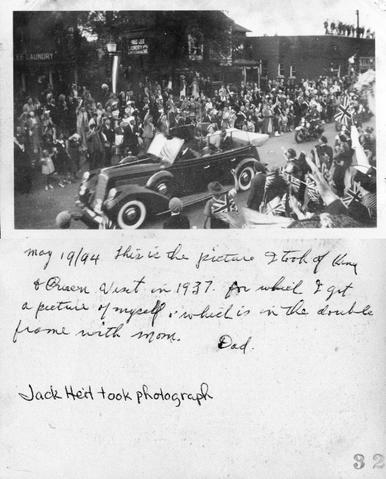 LAUNDRY
LAUNDRY
May 19/94 This is the picture I took of King
& Queen Visit in 1937. for which I got
a picture of myself, which is in the double
frame with mom. Dad.
Jack Heit took photograph
32